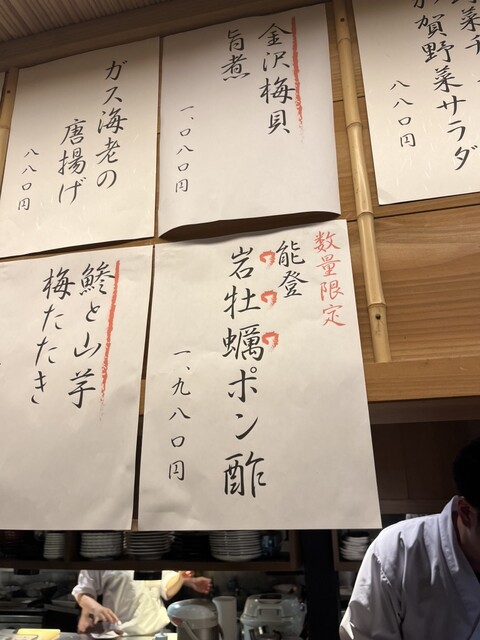 加賀野菜サラダ
八八〇円
金沢梅貝
旨煮
一、〇八〇円
ガス海老の
唐揚げ
八八〇円
数量限定
能登
岩牡蠣ポン酢
一、九八〇円
鯵と山芋
梅たたき